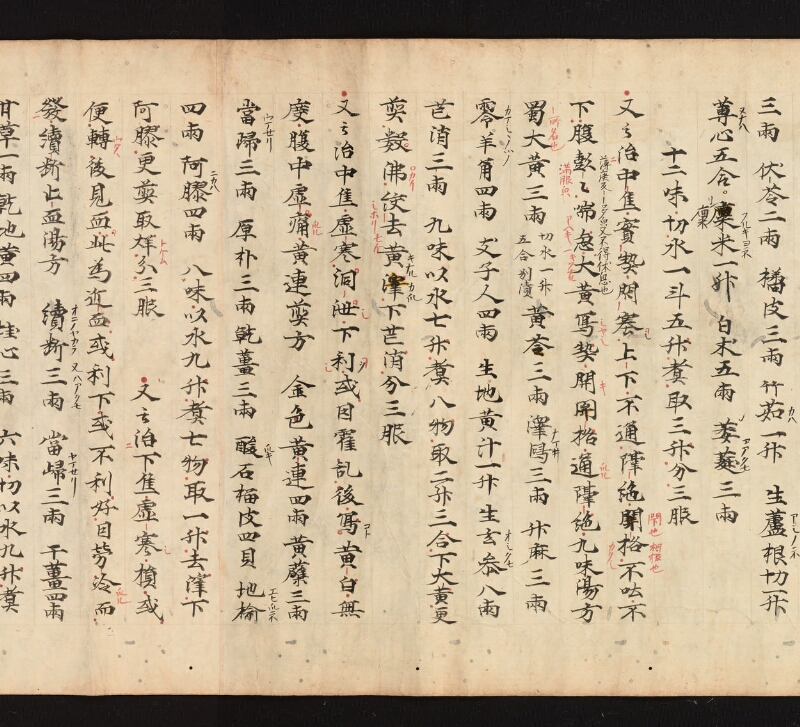 三兩 伏苓二兩 橘皮三兩 竹茹一升 生蘆根切一升
蓴心五合 稟米一升 白朮五兩 萎蕤三兩
十二味切水一斗五升煑取三升分三服
又云治中焦實熱閇塞上下不通隔絶關格不吐不
下腹彭彭喘急大黃寫熱開關格通隔絶九味湯方
蜀大黃三兩 切水一升五合別漬 黃芩三兩 澤瀉三兩 升麻三兩
零羊角四兩 支子人四兩 生地黃汁一升 生玄参八兩
芒消三兩 九味以水七升煑八物取二升三合下大黃更
煎數沸絞去黃滓下芒消分三服
又云治中焦虛寒洞泄下利或因霍乱後寫黃白無
度腹中虛痛黃連煎方 金色黃連四兩 黃蘗三兩
當歸三兩 厚朴三兩 乾薑三兩 酸石榴皮四具 地榆
四兩 阿膠四兩 八味以水九升煑七物取一升去滓下
阿膠更煎取烊分三服 又云治下焦虛寒損或
便轉後見血此為近血或利下或不利好因勞冷而
發續斷止血湯方 續斷三兩 當歸三兩 干薑四兩
甘草一兩 乾地黃四兩 桂心三兩 六味切以水九升煑